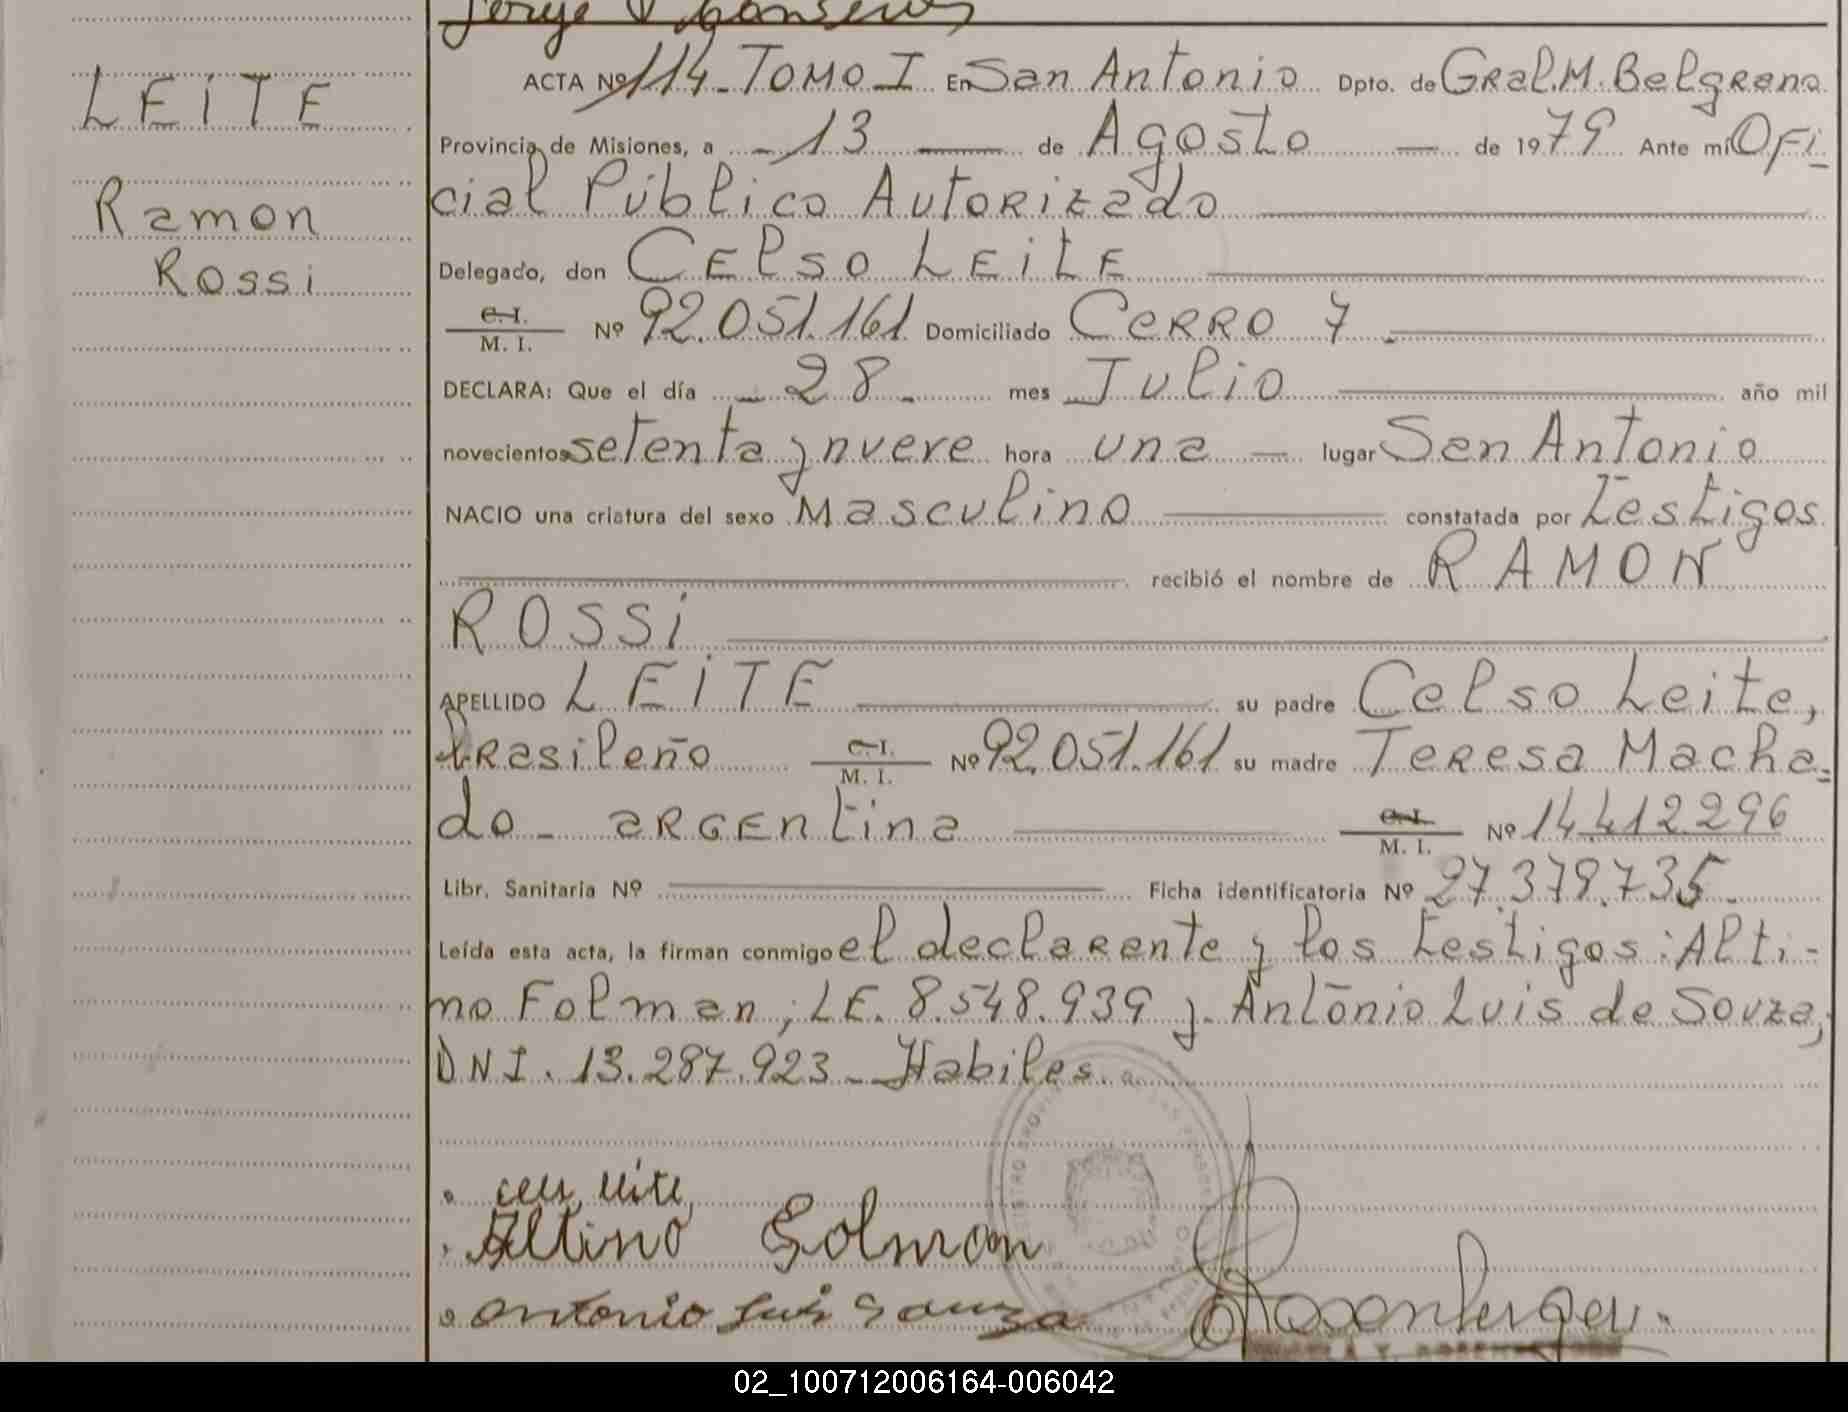 Jorge
ACTA Nº 114 - TOMO I En San Antonio Dpto. de Gral. M. Belgrano
LEITE
Provincia de Misiones, a - 13 — de Agosto — de 1979 Ante mí Ofi-
cial Público Autorizado
Ramon
Delegado, don Celso Leite
Rossi
C. I. / M. I. Nº 92.051.161 Domiciliado Cerro 7 -
DECLARA: Que el día - 28 - mes Julio año mil
novecientos setenta y nueve hora una — lugar San Antonio
NACIO una criatura del sexo Masculino constatada por Testigos
recibió el nombre de RAMON
ROSSi
APELLIDO LEiTE su padre Celso Leite,
brasileño C. I. / M. I. Nº 92.051.161 su madre Teresa Macha-
do - argentina C. I. / M. I. Nº 14412296
Libr. Sanitaria Nº Ficha identificatoria Nº 27.379.735 -
Leída esta acta, la firman conmigo el declarante y los testigos: Alti-
no Folman; LE. 8.548.939 y Antonio Luis de Souza,
D.N.I. 13.287.923 - Habiles.
leite
Altino Folman
antonio luis Souza
02_100712006164-006042